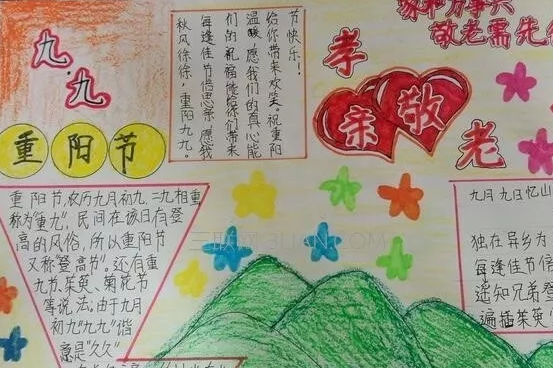 九
九
重阳节
秋风徐徐,重阳九九。
每逢佳节倍思亲 愿我
们的祝福能给你们带来
温暖,愿我们的真心能
给你带来欢笑。祝重阳
节快乐!
家和万事兴
敬老需先
孝
敬
亲
老
重阳节,农历九月初九,二九相重,
称为"重九",民间在该日有登
高的风俗,所以重阳节
又称"登高节"。还有重
九节、茱萸、菊花节
等说法。由于九月
初九"九九"谐
意是"久久"
九月九日忆山
独在异乡为
每逢佳节倍
遥知兄弟登
遍插茱萸
三联网 3LIAN.COM